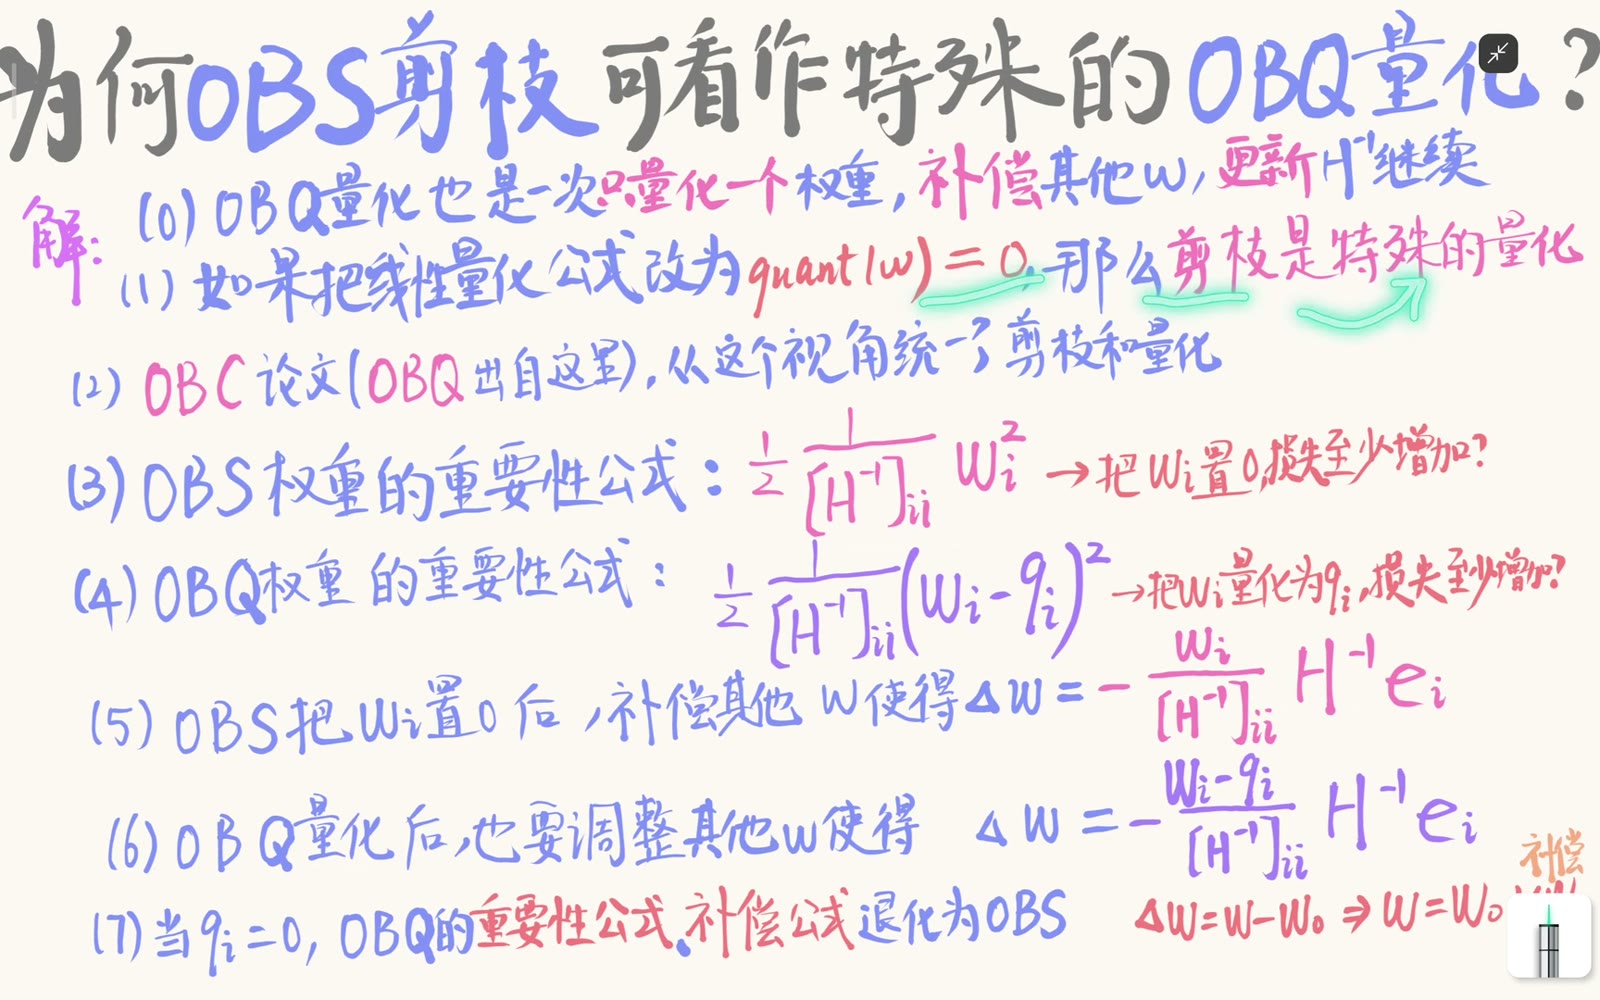 为何OBS剪枝可看作特殊的OBQ量化?
解: (0) OBQ量化也是一次只量化一个权重, 补偿其他w, 更新H⁻¹继续
(1) 如果把线性量化公式改为quant(w)=0, 那么剪枝是特殊的量化
(2) OBC论文(OBQ出自这里), 从这个视角统一了剪枝和量化
(3) OBS权重的重要性公式: 1/2 1/[H⁻¹]ii Wi² →把Wi置0,损失至少增加?
(4) OBQ权重的重要性公式: 1/2 1/[H⁻¹]ii (Wi-qi)² →把Wi量化为qi,损失至少增加?
(5) OBS把Wi置0后, 补偿其他W使得ΔW=- Wi/[H⁻¹]ii H⁻¹ei
(6) OBQ量化后,也要调整其他w使得 ΔW=- Wi-qi/[H⁻¹]ii H⁻¹ei
补偿
(7) 当qi=0, OBQ的重要性公式、补偿公式退化为OBS ΔW=W-W₀ ⇒ W=W₀